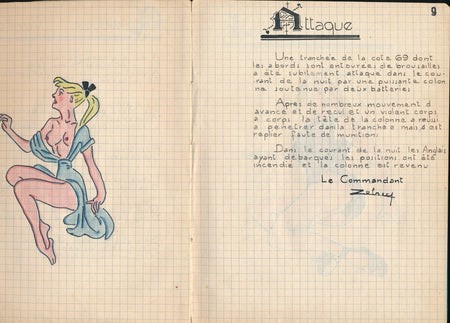 9
Attaque
Une tranchée de la cote 69 dont
les abords sont entourées de brousailles
a été subitement attaque dans le cou-
rant de la nuit par une puissante colon
ne soutenue par deux batteries
Après de nombreux mouvement d'
avance et de recul et un violent corps
à corps, la tête de la colonne a reussi
a pénétrer dans la tranchée mais s'est
replier faute de munition.
Dans le courant de la nuit les Anglais
ayant debarques les positions ont été
incendie et la colonne est revenu
Le Commandant